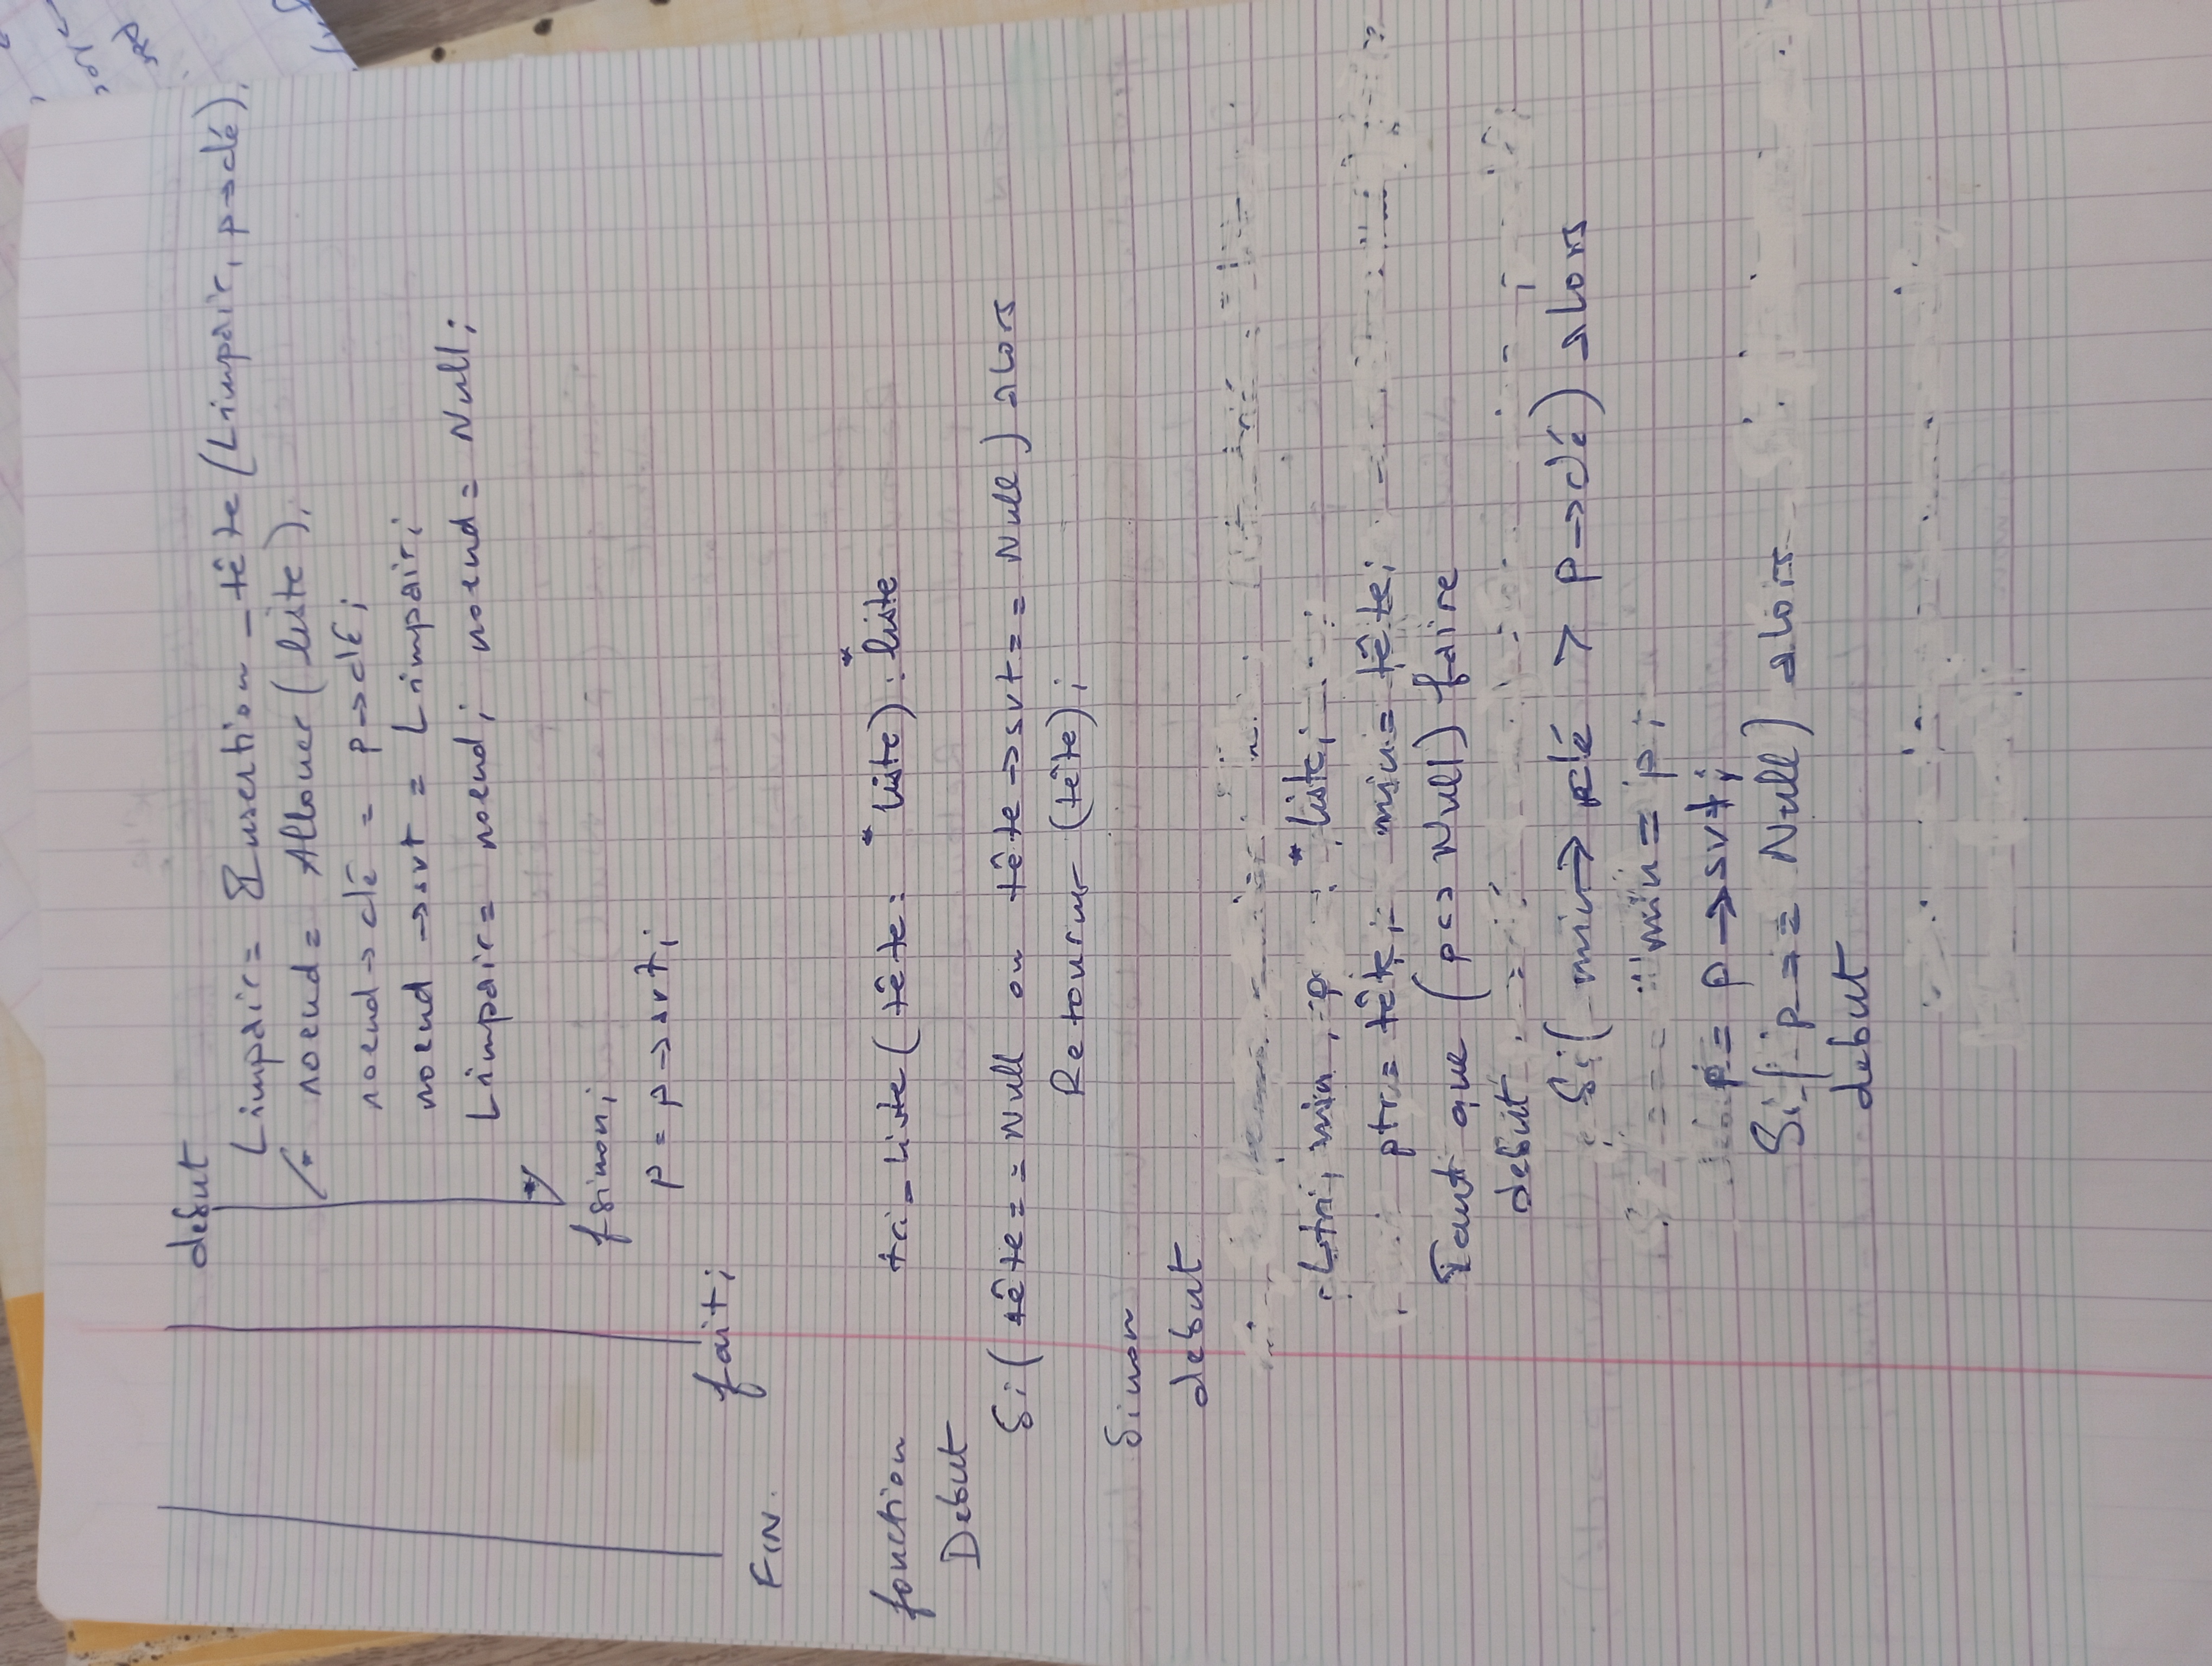 debut
Limpair = Insertion_tête (Limpair, p→clé);
/* noeud = Allouer (liste);
noeud→clé = p→clé;
noeud→svt = Limpair;
Limpair = noeud; noeud = Null;
*/
fsinon;
p = p→svt;
fait;
FIN.
fonction tri_liste (tête : *liste) : *liste
Debut
Si (tête == Null ou tête→svt == Null) alors
Retourner (tête);
Sinon
debut
Ltri, min, p : *liste;
ptr = tête; min = tête;
Tant que (p<>Null) faire
debut
Si (min→clé > p→clé) alors
min = p;
p = p→svt;
Si (p == Null) alors
debut